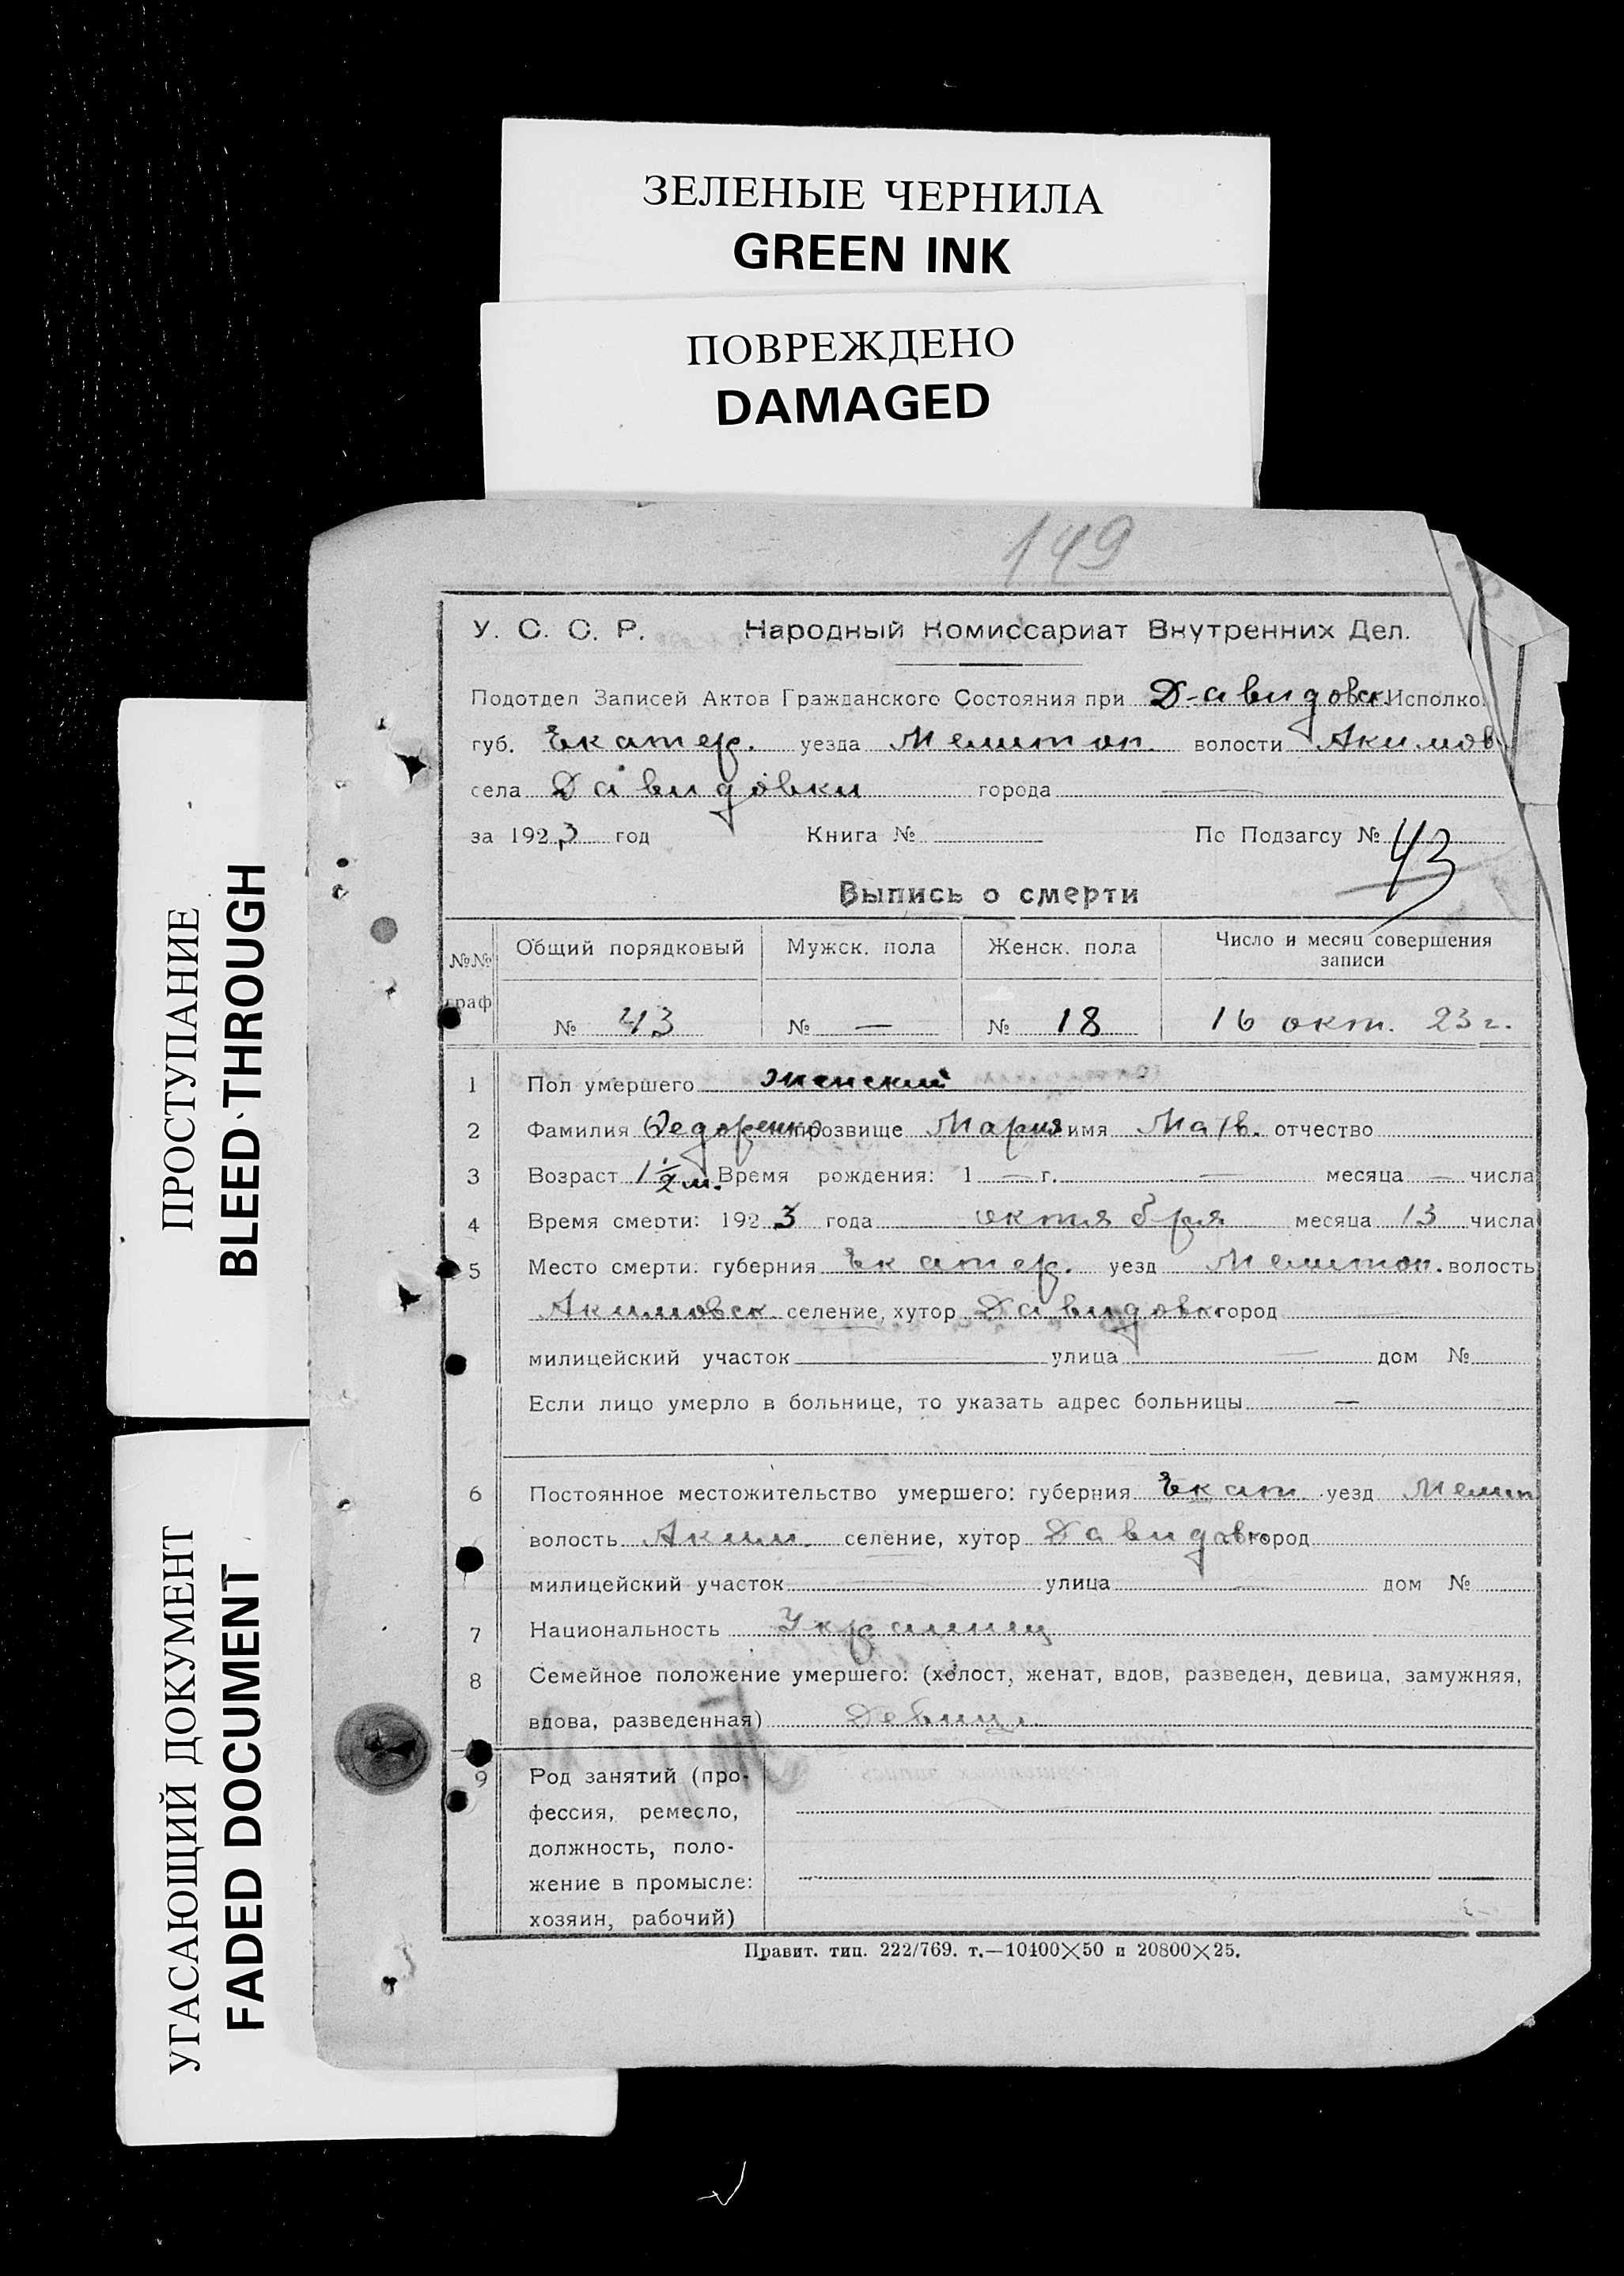 ЗЕЛЕНЫЕ ЧЕРНИЛА
GREEN INK
ПОВРЕЖДЕНО
DAMAGED
ПРОСТУПАНИЕ
BLEED THROUGH
УГАСАЮЩИЙ ДОКУМЕНТ
FADED DOCUMENT
149
У. С. С. Р. Народный Комиссариат Внутренних Дел.
Подотдел Записей Актов Гражданского Состояния при Давидовск. Исполко
губ. Екатер. уезда Мелитоп. волости Акимов
села Давидовки города —
за 1923 год Книга № По Подзагсу № 43
Выпись о смерти
№№ граф Общий порядковый Мужск. пола Женск. пола Число и месяц совершения записи
№ 43 № — № 18 16 окт. 23 г.
1 Пол умершего женский
2 Фамилия Федоренко прозвище Мария имя Матв. отчество
3 Возраст 1 1/2 м. Время рождения: 1 — г. — месяца — числа
4 Время смерти: 1923 года октября месяца 13 числа
5 Место смерти: губерния Екатер. уезд Мелитоп. волость
Акимовск. селение, хутор Давидовк город —
милицейский участок — улица — дом №
Если лицо умерло в больнице, то указать адрес больницы —
6 Постоянное местожительство умершего: губерния Екат. уезд Мелит
волость Аким. селение, хутор Давидовк город
милицейский участок — улица — дом №
7 Национальность Украинец
8 Семейное положение умершего: (холост, женат, вдов, разведен, девица, замужняя,
вдова, разведенная) Девица
9 Род занятий (про-
фессия, ремесло,
должность, поло-
жение в промысле:
хозяин, рабочий)
Правит. тип. 222/769. т.—10400×50 и 20800×25.